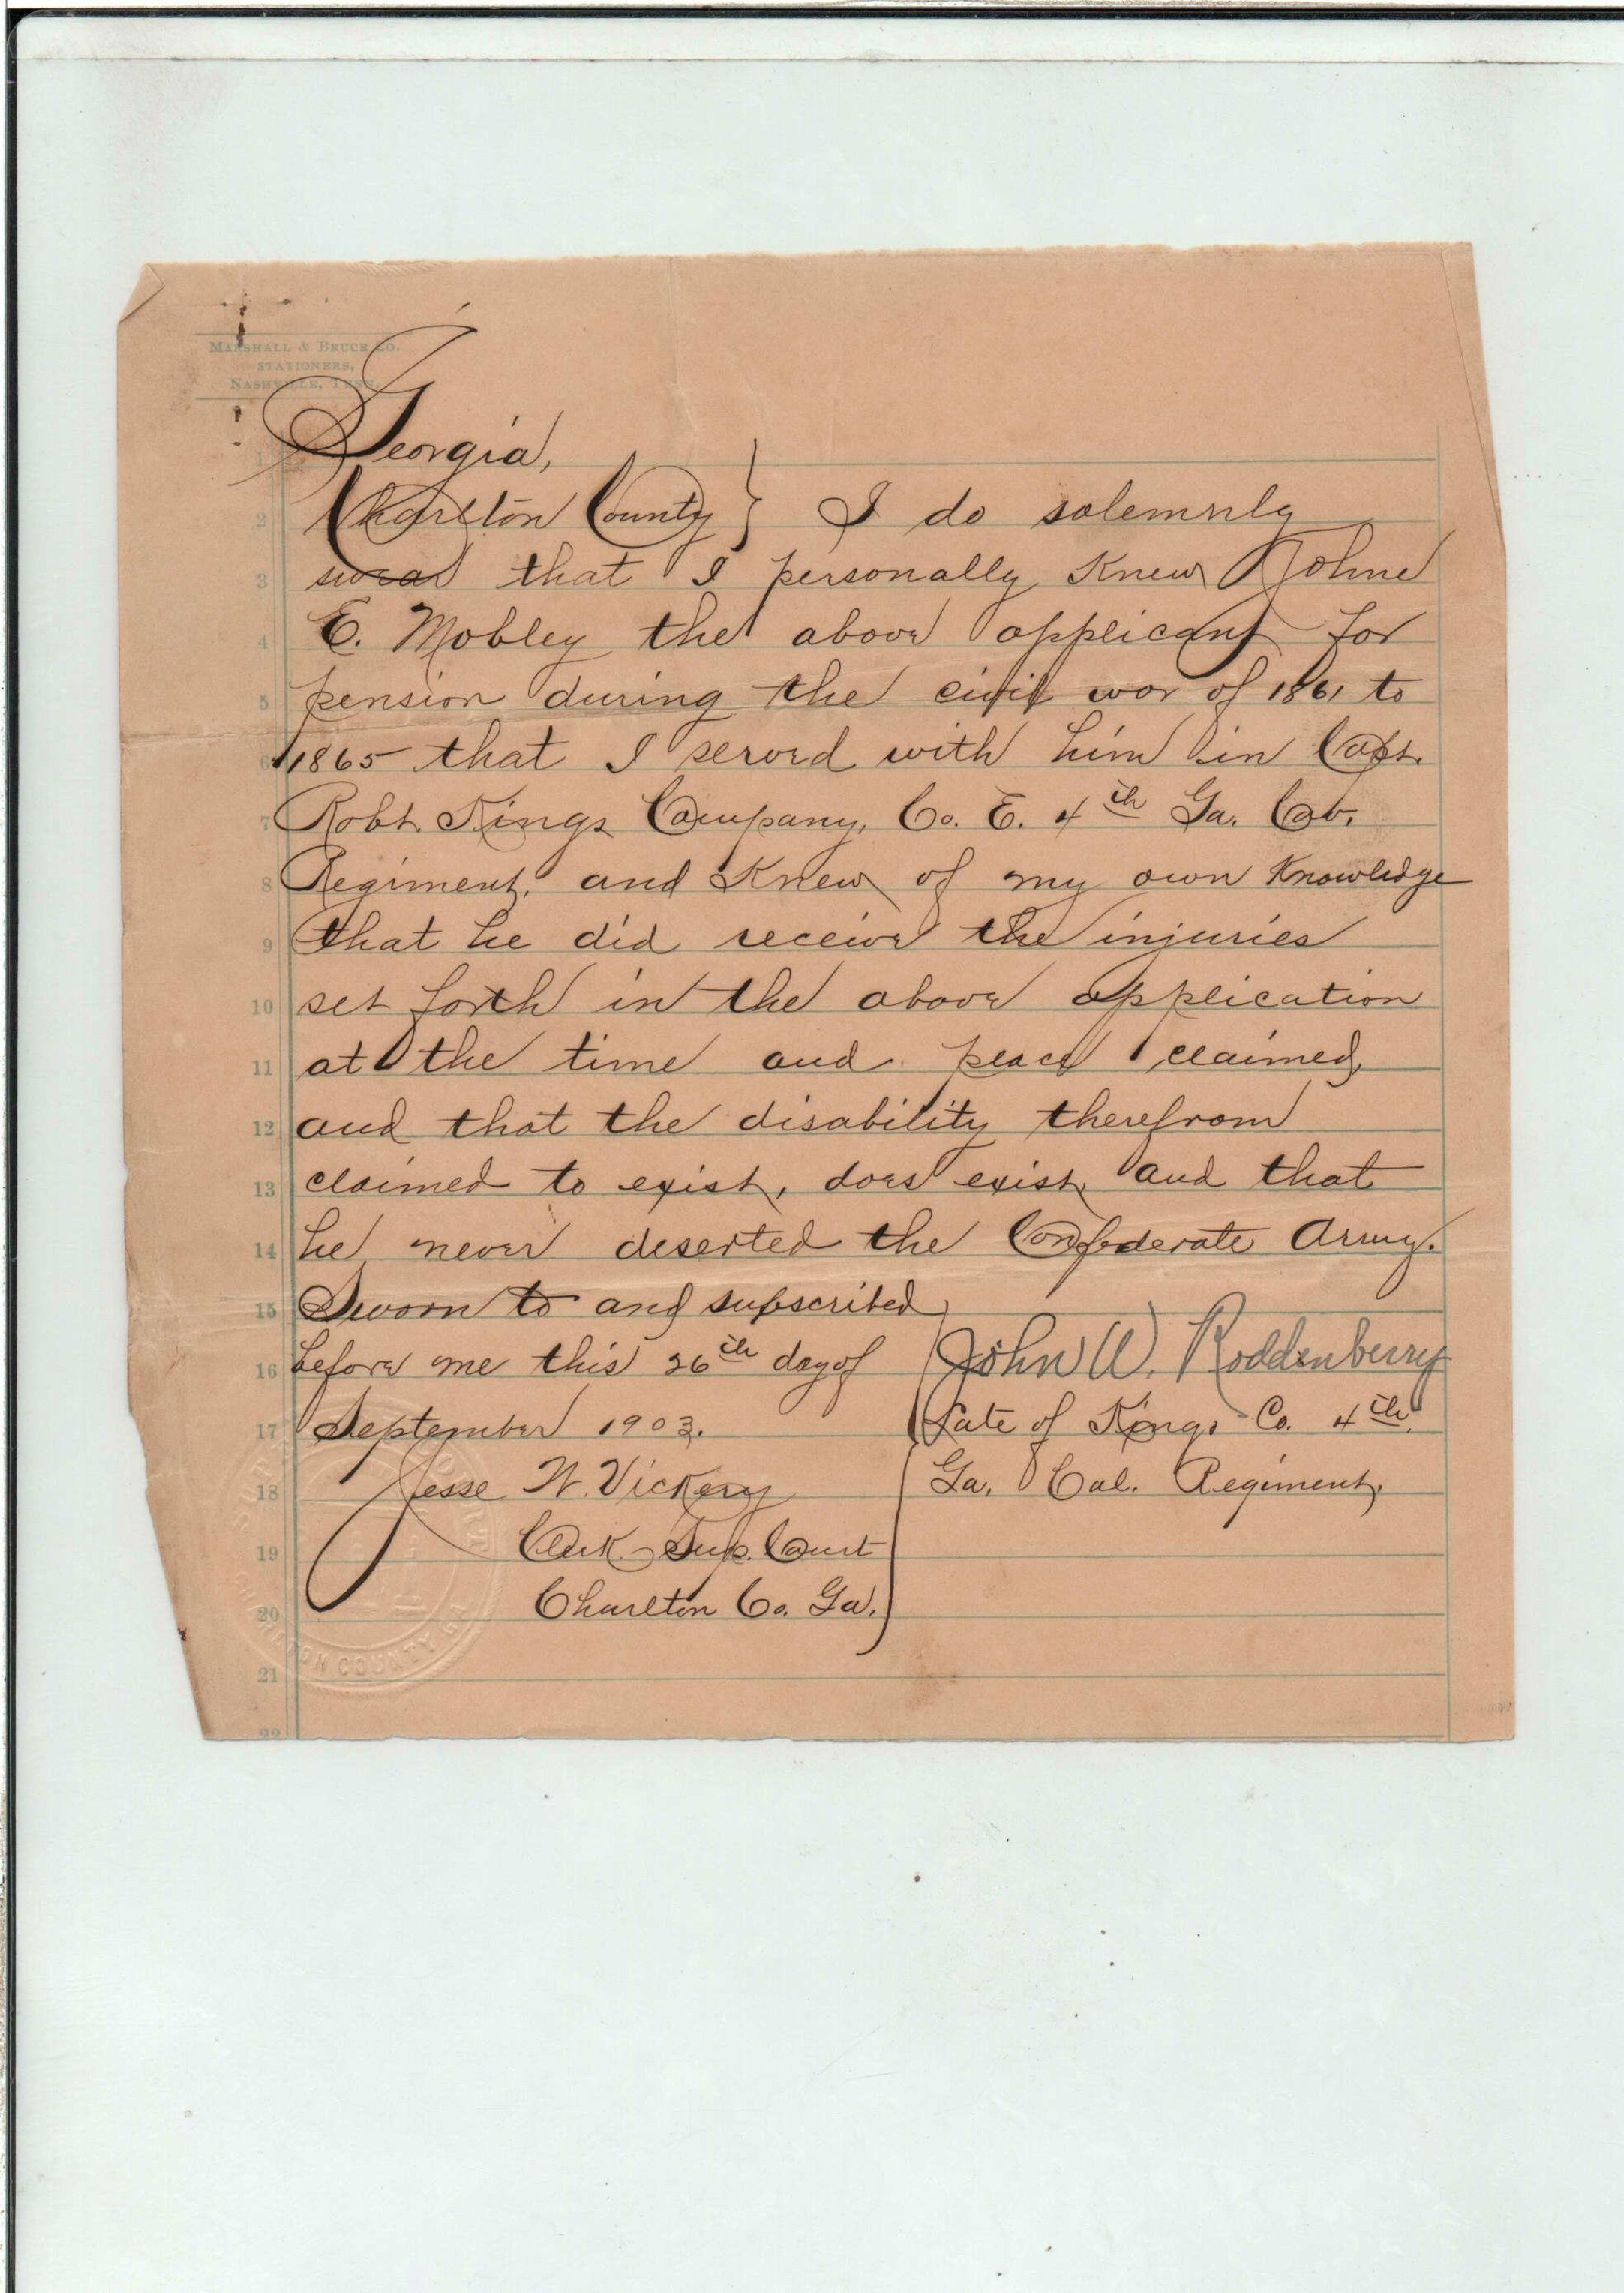 MARSHALL & BRUCE CO.
STATIONERS,
NASHVILLE, TENN.
Georgia,
2 Charlton County } I do solemnly
3 swear that I personally knew John
4 E. Mobley the above applicant for
5 pension during the civil war of 1861 to
6 1865 that I served with him in Capt.
7 Robt. Kings Company, Co. E. 4th Ga. Cav.
8 Regiment, and Knew of my own Knowledge
9 that he did receive the injuries
10 set forth in the above application
11 at the time and place claimed,
12 and that the disability therefrom
13 claimed to exist, does exist, and that
14 he never deserted the Confederate Army.
15 Sworn to and subscribed
16 before me this 26th day of John W. Roddenberry
17 September 1903. Late of Kings Co. 4th
18 Jesse W. Vickery Ga. Cal. Regiment.
19 Clerk Sup. Court
20 Charlton Co. Ga.
COUNTY GA
21
22